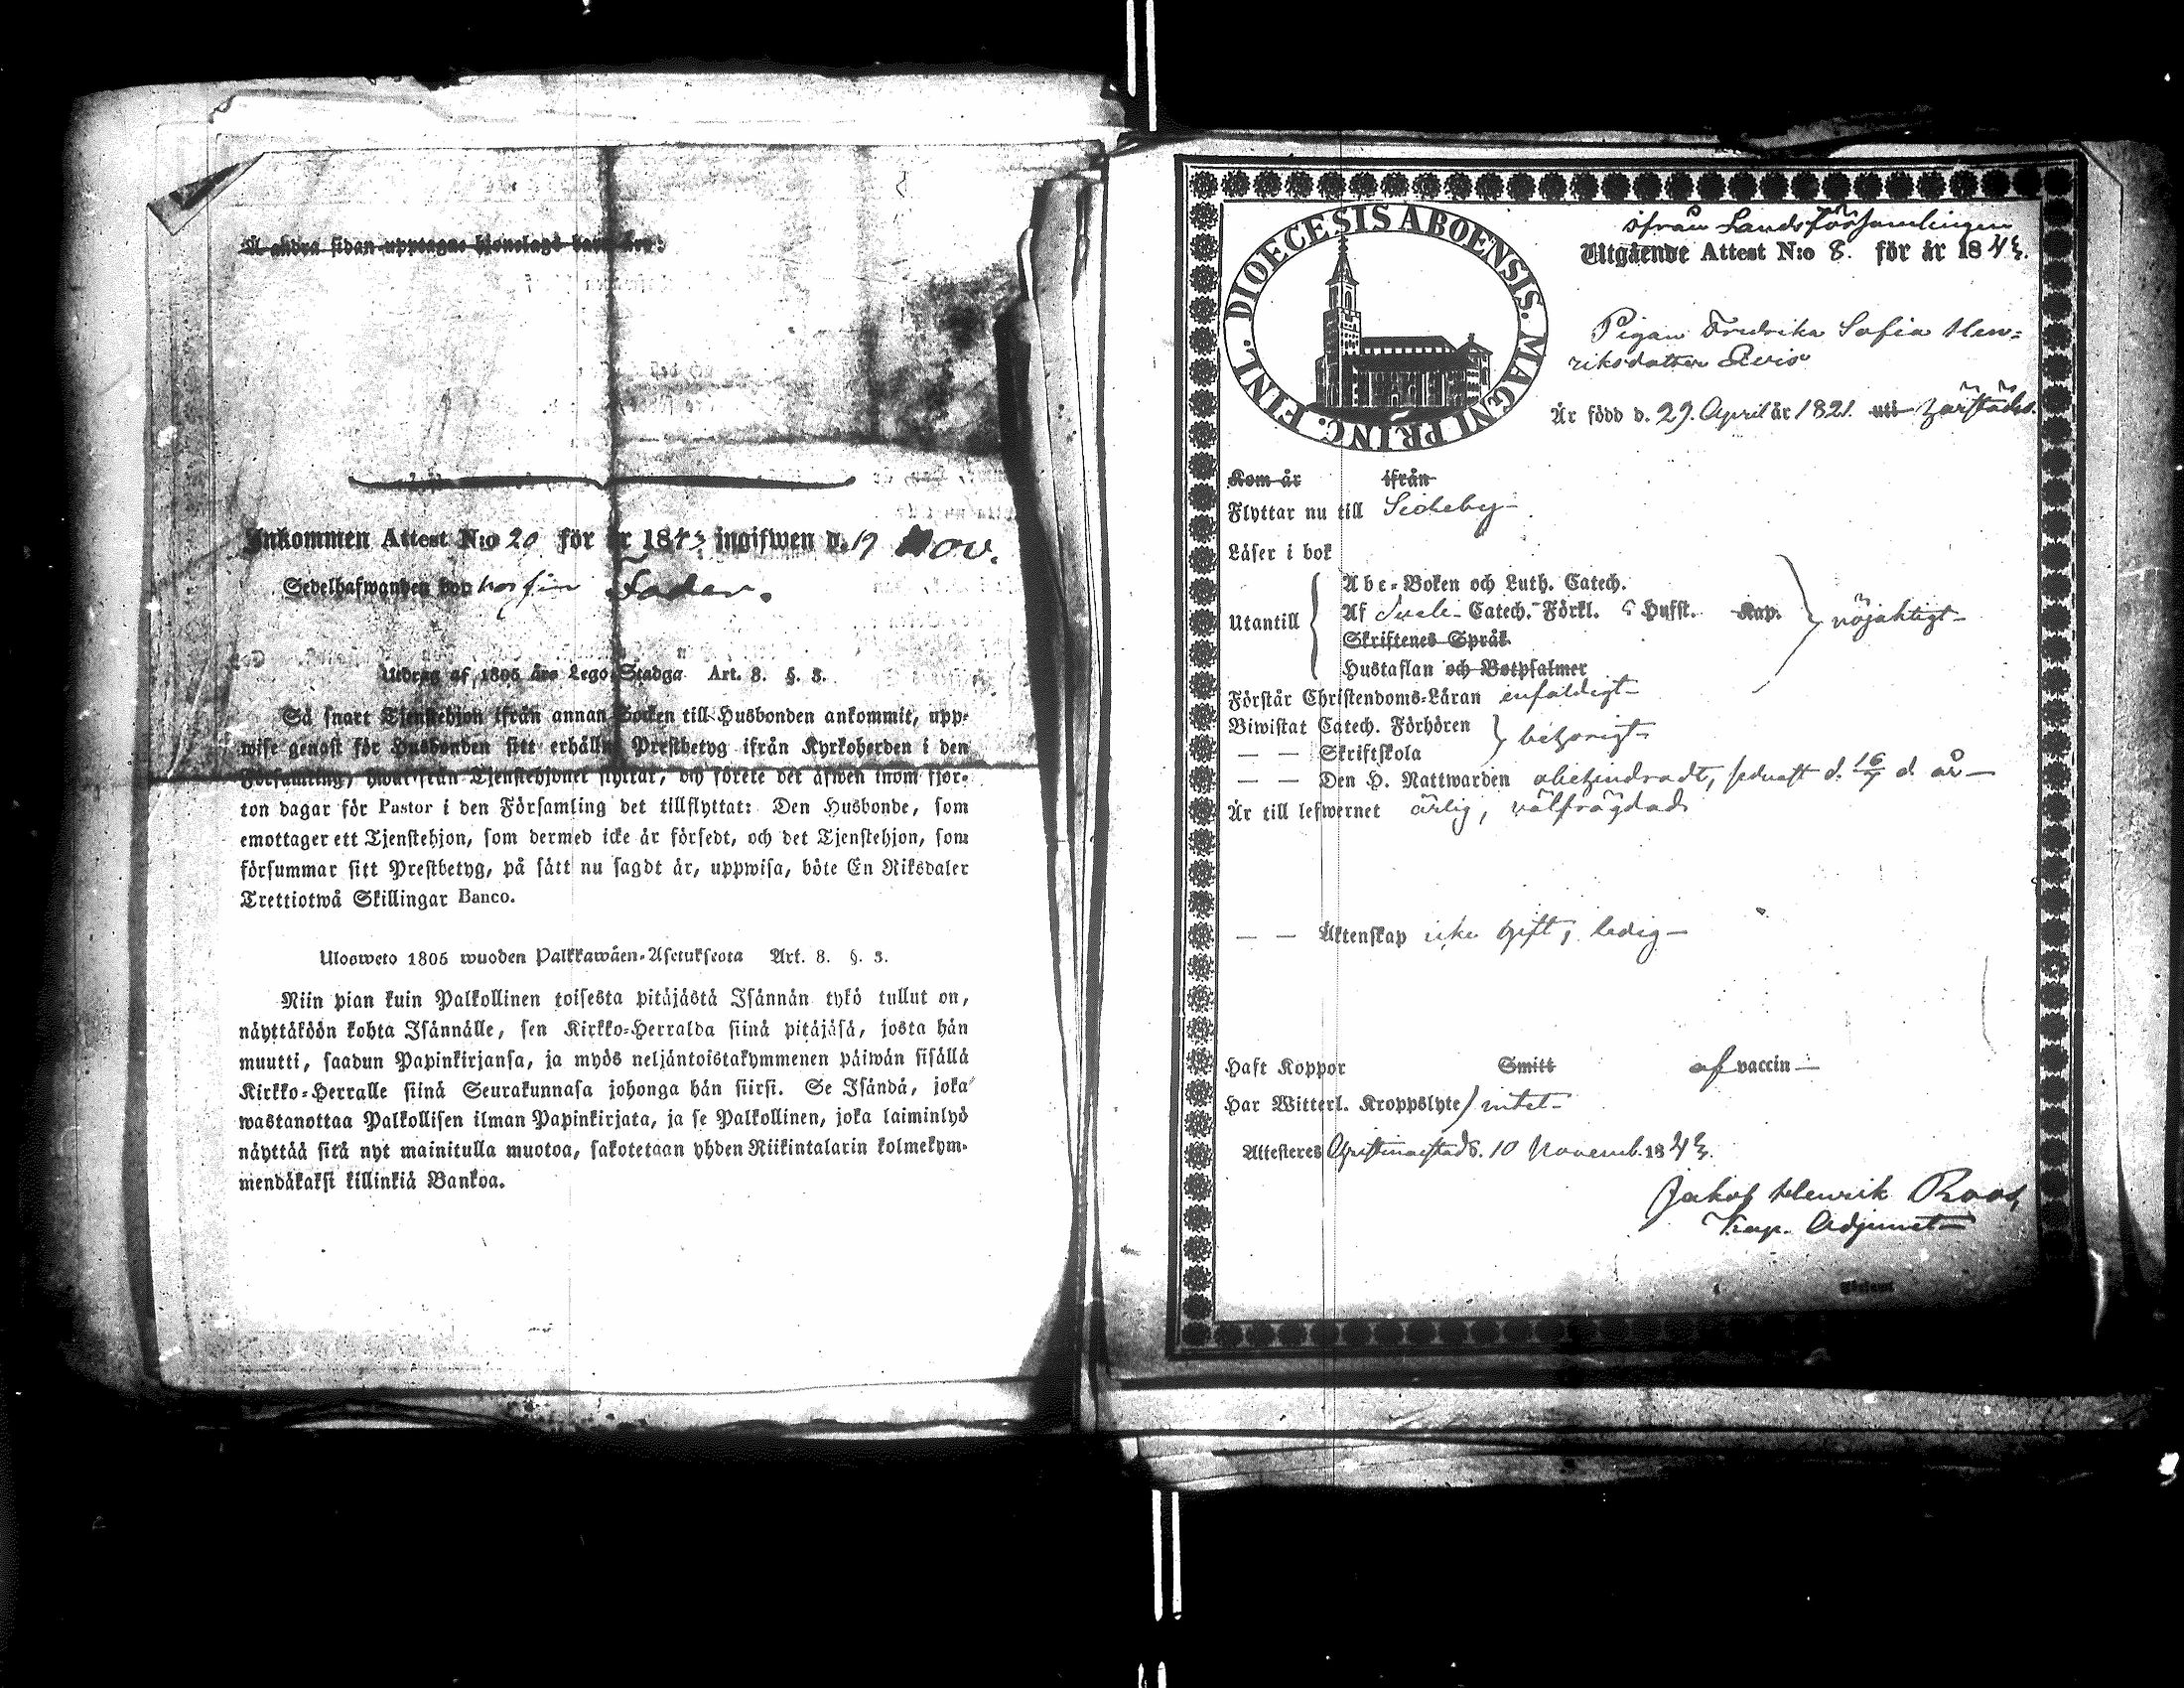 Å andra sidan upptagas hjonelags barn äro:
Inkommen Attest N:o 20 för år 1843 ingifwen d. 19 Nov.
Sedelhafwanden bor hos sin Fader.
Utdrag af 1805 års Lego-Stadga Art. 8. §. 3.
Så snart Tjenstehjon ifrån annan Socken till Husbonden ankommit, upp-
wise genast för Husbonden sitt erhållne Prestbetyg ifrån Kyrkoherden i den
Församling, hwarifrån Tjenstehjonet flyttar, och förete det äfwen inom fjor-
ton dagar för Pastor i den Församling det tillflyttat: Den Husbonde, som
emottager ett Tjenstehjon, som dermed icke är försedt, och det Tjenstehjon, som
försummar sitt Prestbetyg, på sått nu sagdt är, uppwisa, böte En Riksdaler
Trettiotwå Skillingar Banco.
Uloswето 1805 wuoden Palkkawäen-Asetuksesta Art. 8. §. 3.
Niin pian kuin Palkollinen toisesta pitäjästä Isännän tykö tullut on,
näyttäköön kohta Isännälle, sen Kirkko-Herralda siinä pitäjäsä, josta hän
muutti, saadun Papinkirjansa, ja myös neljäntoistakymmenen päiwän sisällä
Kirkko-Herralle siinä Seurakunnasa johonga hän siirsi. Se Isändä, joka
wastanottaa Palkollisen ilman Papinkirjata, ja se Palkollinen, joka laiminlyö
näyttää sitä nyt mainitulla muotoa, sakotetaan yhden Riikintalarin kolmekym-
mendäkaksi killinkiä Bankoa.
DIOECESIS ABOENSIS. MAGNI PRINC. FINL.
ifrån Landsförsamlingen
Utgående Attest N:o 8. för år 1843.
Pigan Fredrika Sofia Hen-
riksdotter
Är född d. 29. April år 1821. uti härstädes.
Kom år ifrån
Flyttar nu till Sideby
Läser i bok
Abc-Boken och Luth. Catech.
Utantill Af Sveb. Catech. Förkl. 5 Hufst. Kap. nöjaktigt
Skriftenes Språk
Hustaflan och Botpsalmer
Förstår Christendoms-Läran enfaldigt
Biwistat Catech. Förhören
— — Skriftskola behörigt
— — Den H. Nattwarden obehindradt, sednast d. 16/7 d. år
Är till lefwernet ärlig, välfrägdad
— — Äktenskap icke gift, ledig
Haft Koppor Smitt af vaccin
Har Witterl. Kroppslyte intet
Attesteres Christinæstad d. 10 Novemb. 1843.
Jakob Henrik Roos,
Kap. Adjunct